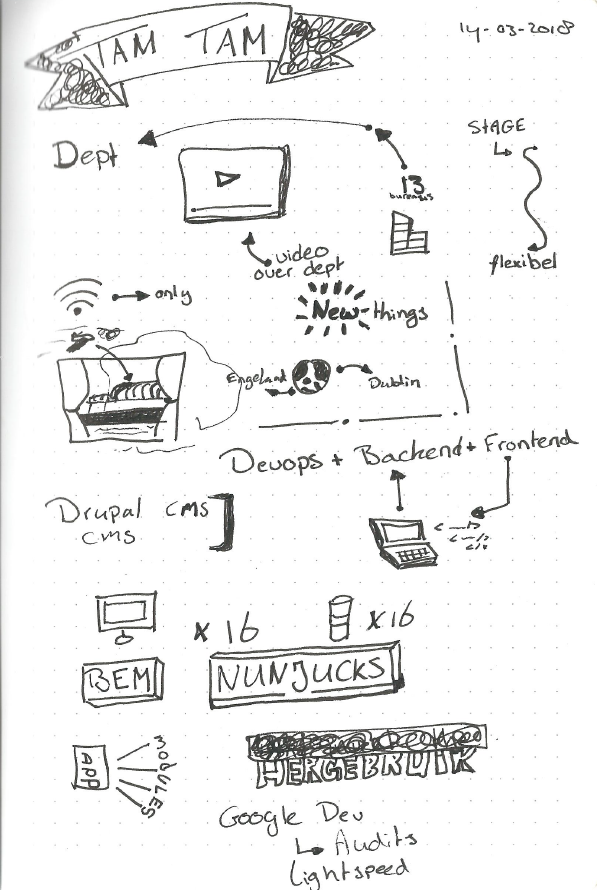 TAM TAM
14-03-2018
Dept
STAGE
13
bureaus
flexibel
video
over dept
only
New things
Engeland
Dublin
Devops + Backend + Frontend
Drupal CMS
CMS
< -->
< --/>
</>
x 16
x 16
BEM
NUNJUCKS
APP
MODULES
HERGEBRUIK
Google Dev
Audits
Lightspeed